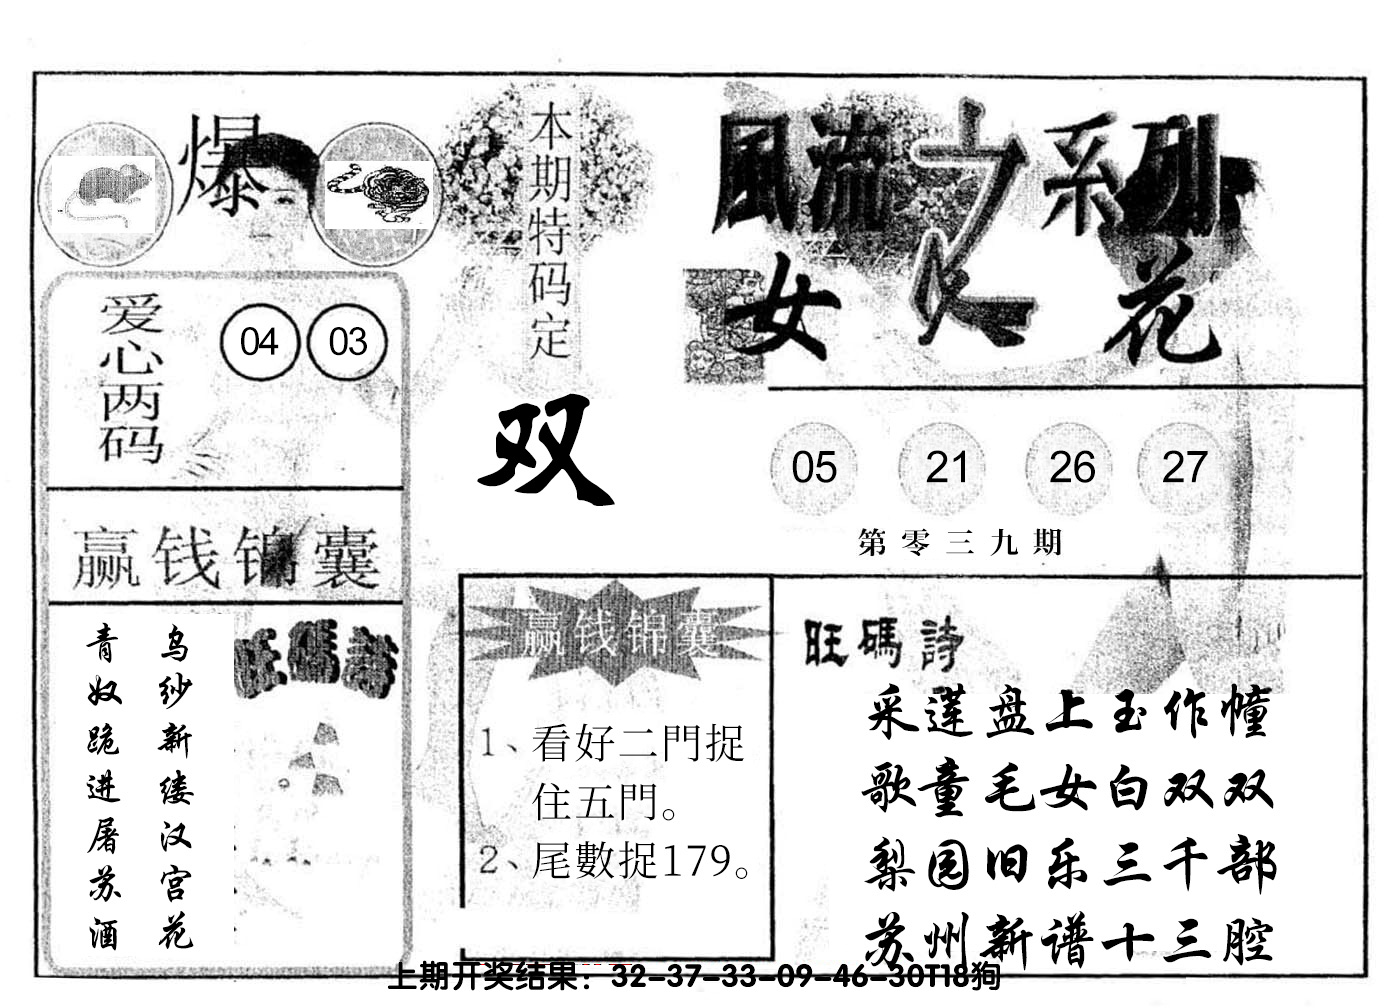 爆
本期特码定
双
風流之系列
女人花
爱心两码
04 03
05 21 26 27
第零三九期
赢钱锦囊
乌纱新缕汉宫花
青奴跪进屠苏酒
旺碼詩
赢钱锦囊
1、看好二門捉
住五門。
2、尾數捉179。
旺碼詩
采莲盘上玉作幢
歌童毛女白双双
梨园旧乐三千部
苏州新谱十三腔
上期开奖结果：32-37-33-09-46-30T18狗